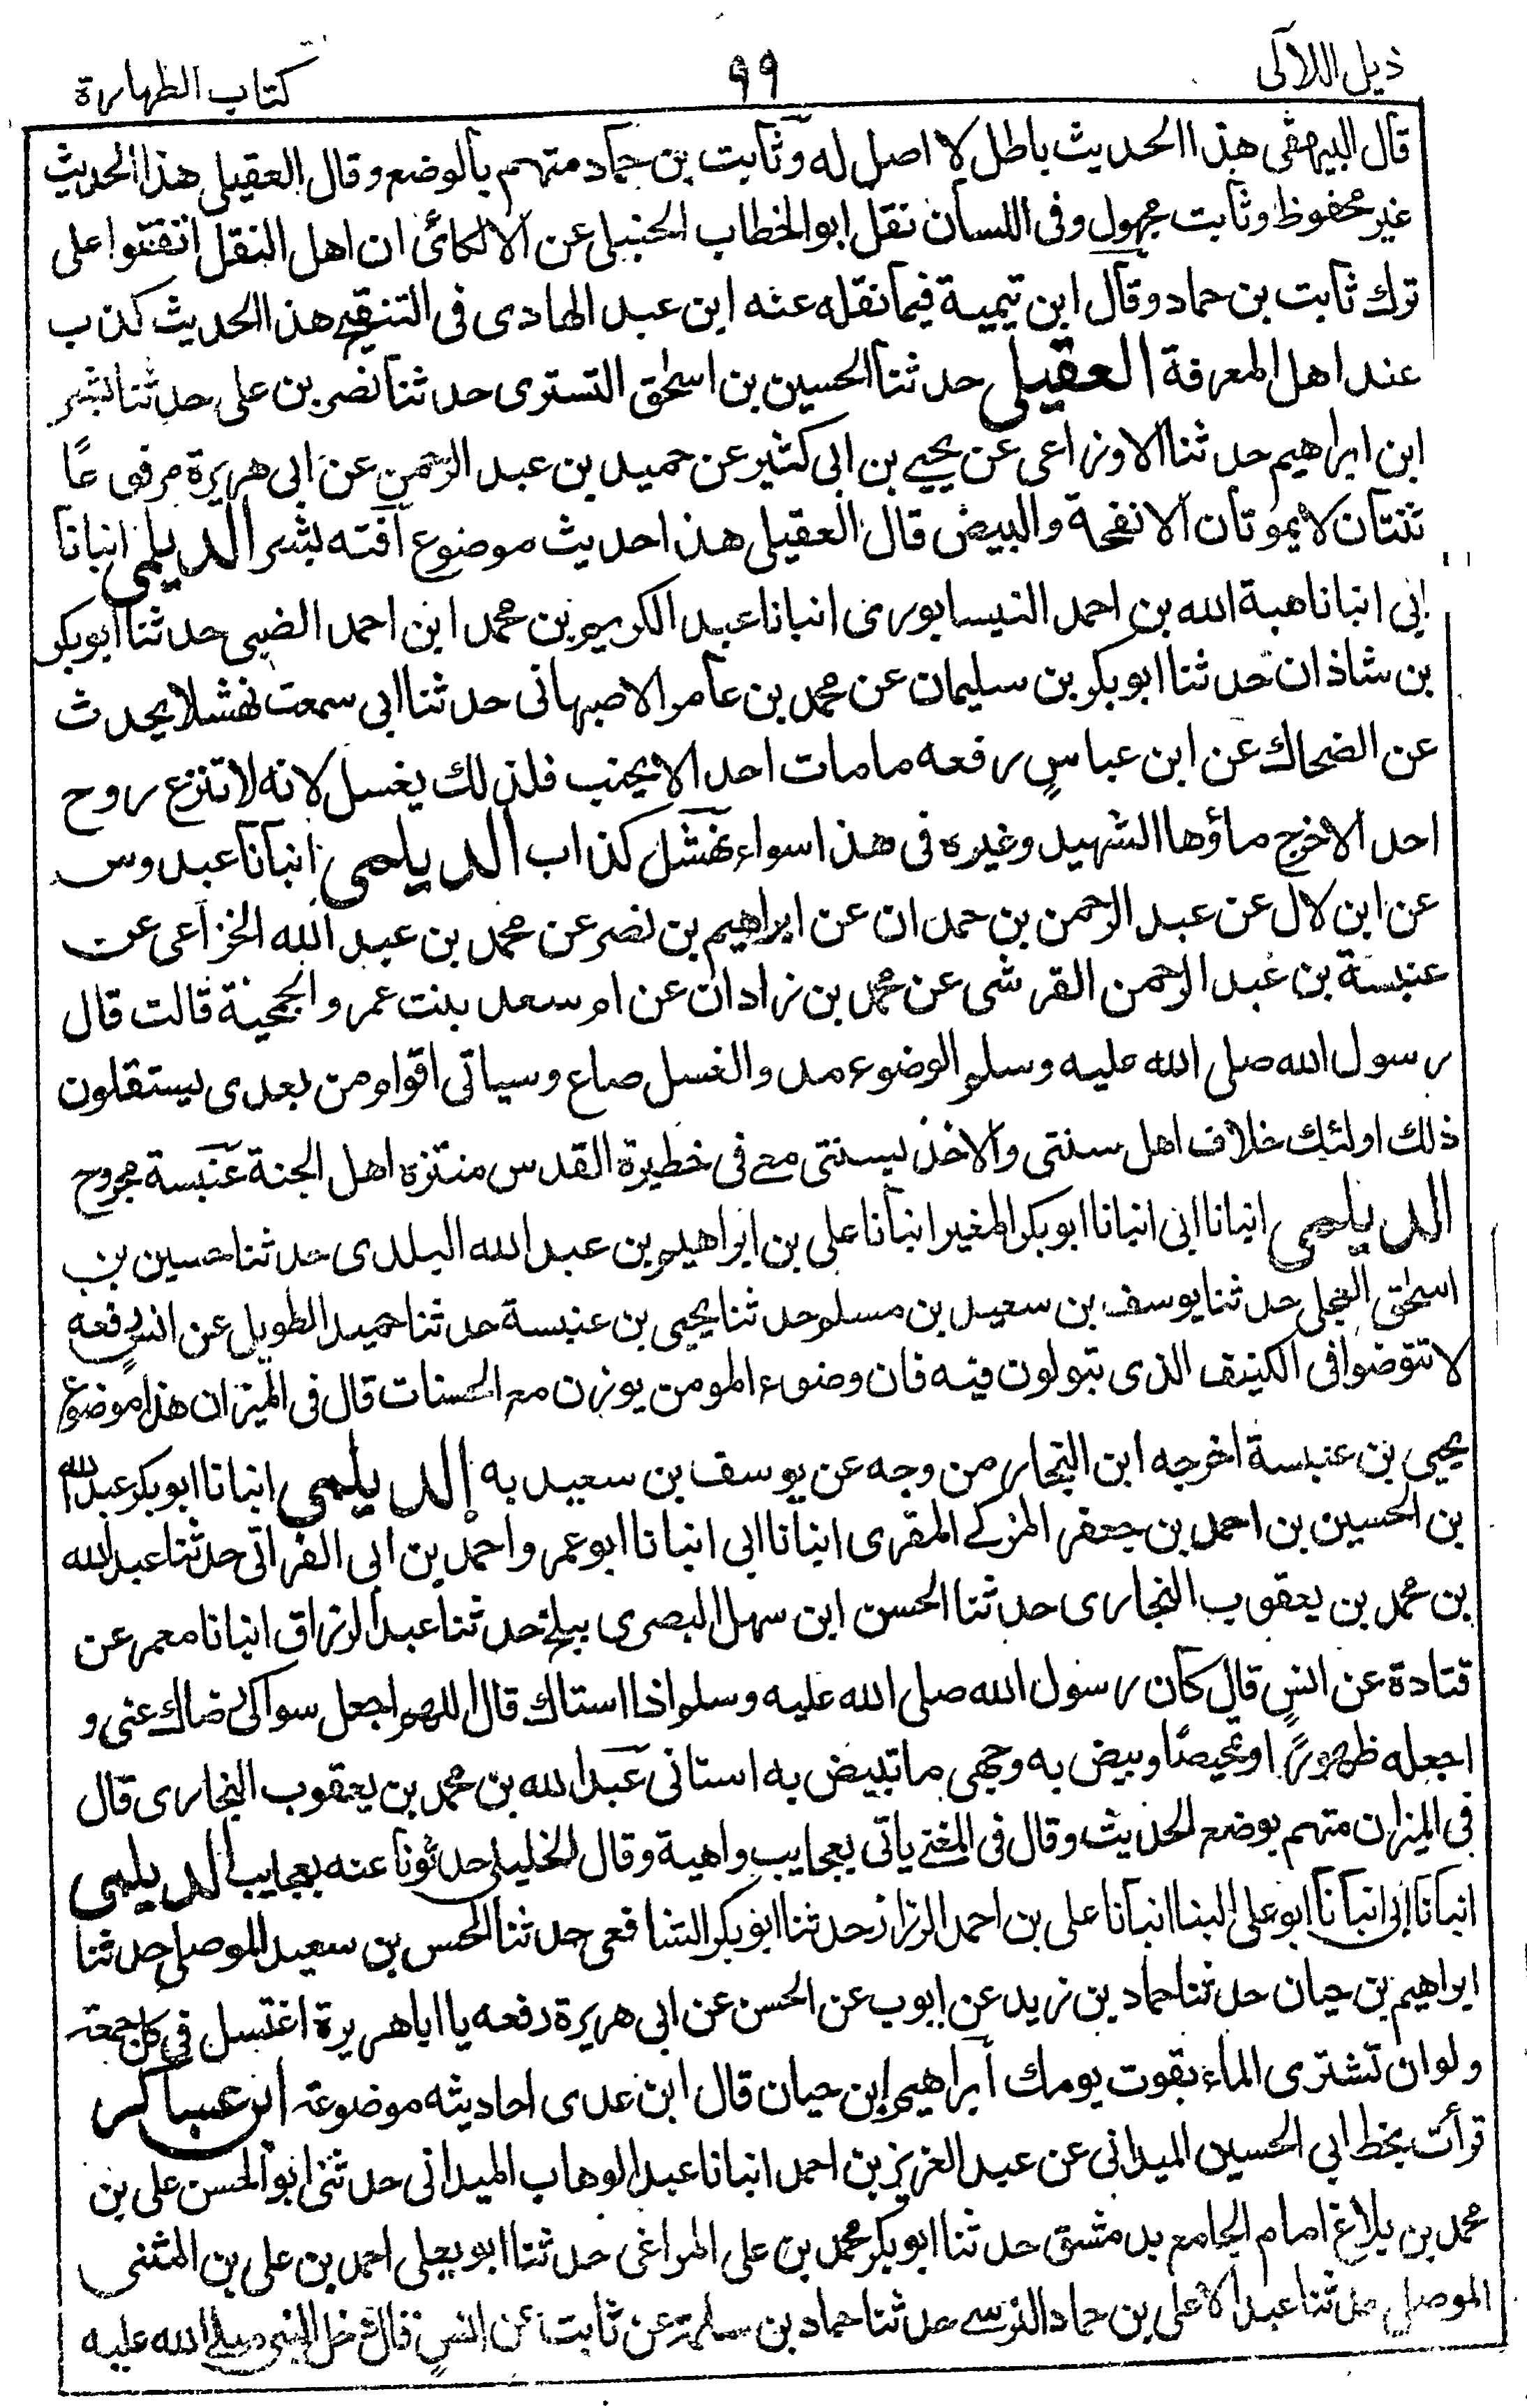 ذيل اللآلى
٩٩
كتاب الطهارة
قال البيهقى هذا الحديث باطل لا اصل له وثابت بن حماد متهم بالوضع وقال العقيلى هذا الحديث
غير محفوظ وثابت مجهول وفى اللسان نقل ابو الخطاب الحنبلى عن الالكائى ان اهل النقل اتفقوا على
ترك ثابت بن حماد وقال ابن تيمية فيما نقله عنه ابن عبد الهادى فى التنقيح هذا الحديث كذب
عند اهل المعرفة العقيلى حدثنا الحسين بن اسحق التسترى حدثنا نصر بن على حدثنا بشر
ابن ابراهيم حدثنا الاوزاعى عن يحيى بن ابى كثير عن حميد بن عبد الرحمن عن ابى هريرة مرفوعًا
ثنتان لا يموتان الانفحة والبيض قال العقيلى هذا حديث موضوع آفته بشر الديلمى انبانا
ابى انبانا هبة الله بن احمد النيسابورى انبانا عبد الكريم بن محمد ابن احمد الضبى حدثنا ابوبكر
بن شاذان حدثنا ابوبكر بن سليمان عن محمد بن عامر الاصبهانى حدثنا ابى سمعت نهشلا يحدث
عن الضحاك عن ابن عباسٍ رفعه مامات احد الا يجنب فلذلك يغسل لانه لا تنزع روح
احد الاخرج ماؤها الشهيد وغيره فى هذا سواء نهشل كذاب الديلمى انبانا عبدوس
عن ابن لال عن عبد الرحمن بن حمدان عن ابراهيم بن نصر عن محمد بن عبد الله الخزاعى عن
عنبسة بن عبد الرحمن القرشى عن محمد بن زادان عن ام سعد بنت عمرو الجحينة قالت قال
رسول الله صلى الله عليه وسلم الوضوء مد والغسل صاع وسياتى اقوام من بعدى يستقلون
ذلك اولئك خلاف اهل سنتى والاخذ بسنتى معى فى خطيرة القدس منتزه اهل الجنة عنبسة مجروح
الديلمى انبانا ابى انبانا ابوبكر المغير انبانا على بن ابراهيم بن عبد الله البلدى حدثنا حسين بن
اسحق العجلى حدثنا يوسف بن سعيد بن مسلم حدثنا يحيى بن عنبسة حدثنا حميد الطويل عن انسٍ رفعه
لا تتوضوا فى الكنيف الذى تبولون فيه فان وضوء المومن يوزن مع الحسنات قال فى الميزان هذا موضوع
يحيى بن عنبسة اخرجه ابن النجار من وجه عن يوسف بن سعيد به الديلمى انبانا ابوبكر عبد الله
بن الحسين بن احمد بن جعفر المزكى المقرى انبانا ابى انبانا ابو عمرو احمد بن ابى الفراتى حدثنا عبد الله
بن محمد بن يعقوب النجارى حدثنا الحسن ابن سهل البصرى ببلخ حدثنا عبد الرزاق انبانا معمر عن
قتادة عن انسٍ قال كان رسول الله صلى الله عليه وسلم اذا استاك قال اللهم اجعل سواكى رضاك عنى و
اجعله طهورًا وتمحيصًا وبيض به وجهى ما تبيض به اسنانى عبد الله بن محمد بن يعقوب النجارى قال
فى الميزان متهم بوضع الحديث وقال فى المغنى ياتى بعجايب واهية وقال الخليلى حدثونا عنه بعجايب الديلمى
انبانا ابى انبانا ابو على البنا انبانا على بن احمد الرزاز حدثنا ابوبكر الشافعى حدثنا الحسن بن سعيد الموصلى حدثنا
ابراهيم بن حيان حدثنا حماد بن زيد عن ايوب عن الحسن عن ابى هريرة رفعه يا اباهريرة اغتسل فى كل جمعة
ولو ان تشترى الماء بقوت يومك ابراهيم ابن حيان قال ابن عدى احاديثه موضوعة ابن عساكر
قرأت بخط ابى الحسين الميدانى عن عبد العزيز بن احمد انبانا عبد الوهاب الميدانى حدثنى ابو الحسن على بن
محمد بن بلاغ امام الجامع بدمشق حدثنا ابوبكر محمد بن على المراغى حدثنا ابو يعلى احمد بن على بن المثنى
الموصلى حدثنا عبد الاعلى بن حماد النرسى حدثنا حماد بن سلمة عن ثابت عن انسٍ قال دخل النبى صلى الله عليه